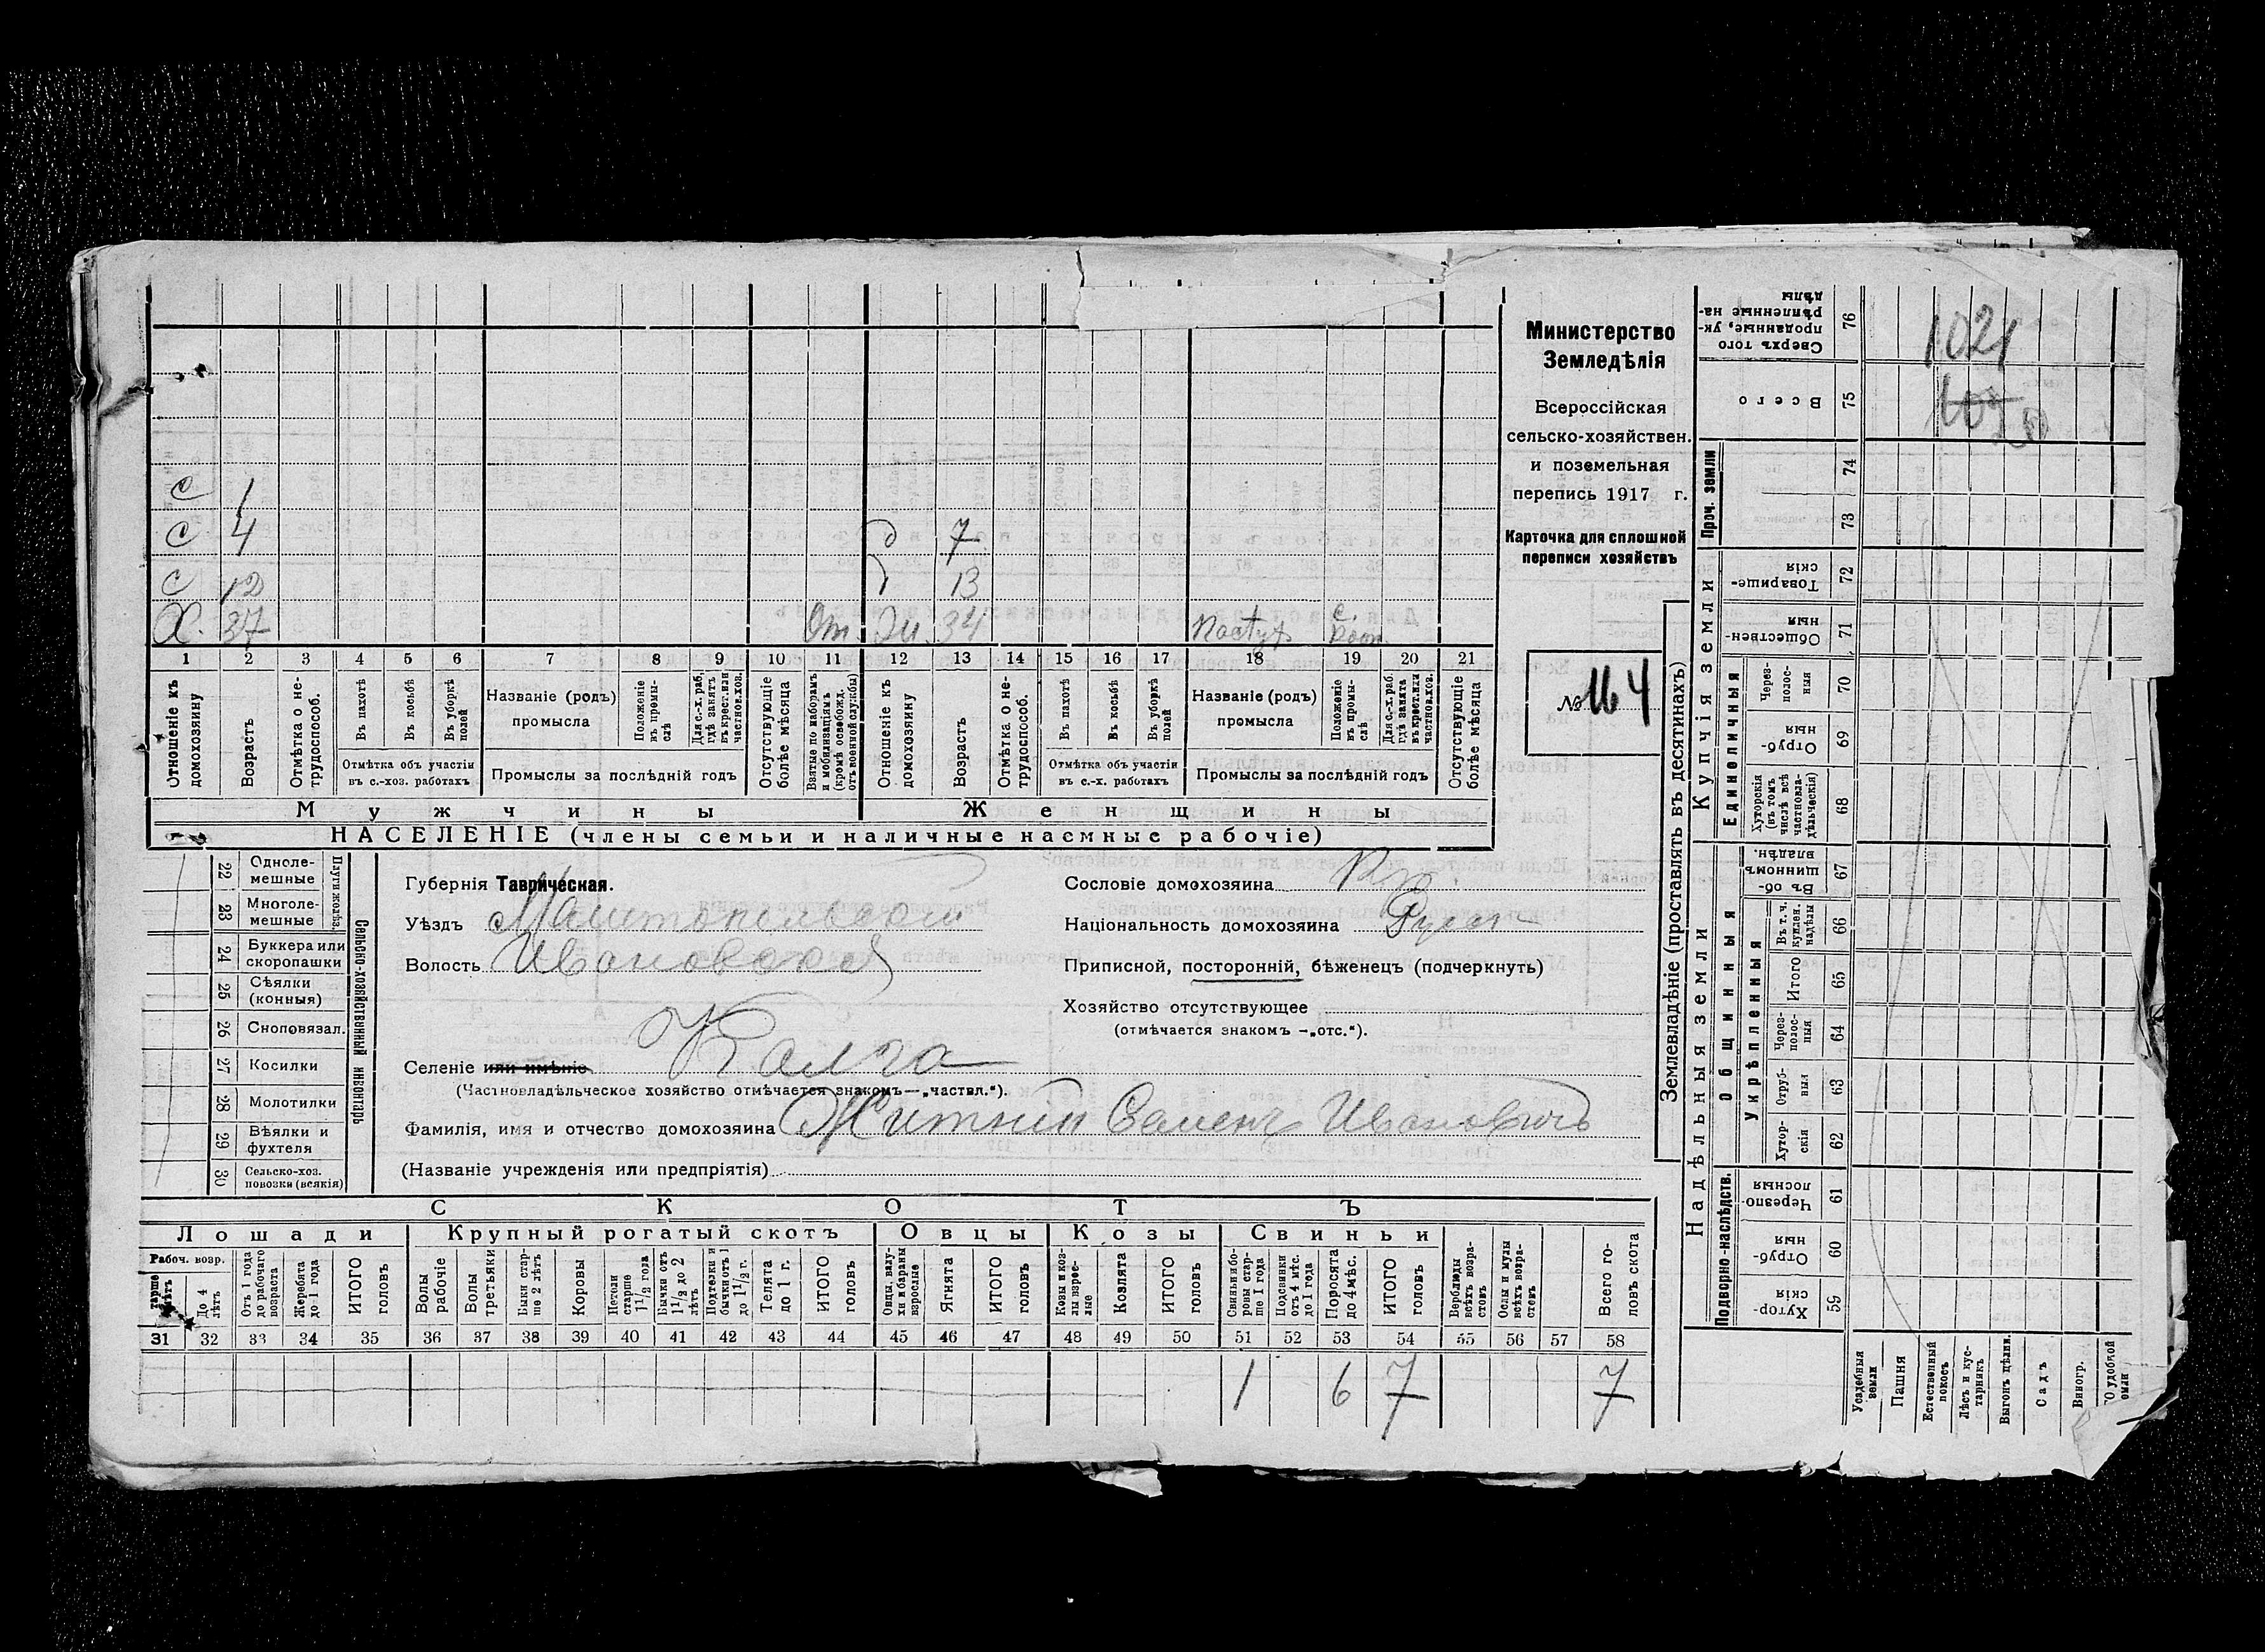 с 1
с 4 д 7
с 12 д 13
Х. 37 От. Ж 34 пастух с.
1 2 3 4 5 6 7 8 9 10 11 12 13 14 15 16 17 18 19 20 21
Отношеніе къ домохозяину
Возрастъ
Отмѣтка о не-
трудоспособ.
Въ пахотѣ
Въ косьбѣ
Въ уборкѣ полей
Отмѣтка объ участіи
въ с.-хоз. работахъ
Названіе (родъ)
промысла
Положеніе въ промы-
слѣ
Для с.-х. раб.
гдѣ занятъ
въ крест. или
частнов. хоз.
Промыслы за послѣдній годъ
Отсутствующіе
болѣе мѣсяца
Взятые по наборамъ
и мобилизаціямъ
(кромѣ освобожд.
отъ военной службы)
Отношеніе къ домохозяину
Возрастъ
Отмѣтка о не-
трудоспособ.
Въ пахотѣ
Въ косьбѣ
Въ уборкѣ полей
Отмѣтка объ участіи
въ с.-х. работахъ
Названіе (родъ)
промысла
Положеніе въ промы-
слѣ
Для с.-х. раб.
гдѣ занята
въ крест. или
частнов. хоз.
Промыслы за послѣдній годъ
Отсутствующіе
болѣе мѣсяца
Мужчины Женщины
НАСЕЛЕНІЕ (члены семьи и наличные наемные рабочіе)
Министерство
Земледѣлія
Всероссійская
сельско-хозяйствен.
и поземельная
перепись 1917 г.
Карточка для сплошной
переписи хозяйствъ
№ 164
22 Одноле-
мешные
23 Многоле-
мешные
Плуги желѣз.
24 Буккера или
скоропашки
25 Сѣялки
(конныя)
26 Сноповязал.
27 Косилки
28 Молотилки
29 Вѣялки и
фухтеля
30 Сельско-хоз.
повозки (всякія)
Сельско-хозяйственный инвентарь
Губернія Таврическая.
Уѣздъ Мелитопольскій
Волость Ивановская
Селеніе или имѣніе Калга
(Частновладѣльческое хозяйство отмѣчается знакомъ—„частвл.“).
Фамилія, имя и отчество домохозяина Житній Семенъ Ивановичъ
(Названіе учрежденія или предпріятія)
Сословіе домохозяина Кр
Національность домохозяина Русск
Приписной, посторонній, бѣженецъ (подчеркнуть)
Хозяйство отсутствующее
(отмѣчается знакомъ —„отс.“).
СКОТЪ
Лошади Крупный рогатый скотъ Овцы Козы Свиньи
Рабоч. возр.
До 4 лѣтъ
Отъ 1 года
до рабочаго
возраста
Жеребята
до 1 года
ИТОГО
головъ
Волы
рабочіе
Волы
третьяки
Быки стар-
ше 2 лѣтъ
Коровы
Нетели
старше
1 1/2 года
Бычки отъ
1 1/2 до 2
лѣтъ
Подтелки и
бычки отъ 1
до 1 1/2 г.
Телята
до 1 г.
ИТОГО
головъ
Овцы, валу-
хи и бараны
взрослые
Ягнята
ИТОГО
головъ
Козы и коз-
лы взрос-
лые
Козлята
ИТОГО
головъ
Свиньи и бо-
ровы стар-
ше 1 года
Подсвинки
отъ 4 мѣс.
до 1 года
Поросята
до 4 мѣс.
ИТОГО
головъ
Верблюды
всѣхъ возра-
стовъ
Ослы и мулы
всѣхъ возра-
стовъ
Всего го-
ловъ скота
31 32 33 34 35 36 37 38 39 40 41 42 43 44 45 46 47 48 49 50 51 52 53 54 55 56 57 58
1 6 7 7
Землевладѣніе (проставлять въ десятинахъ)
Сверхъ того
проданные, ук-
рѣпленные на-
дѣлы
76
1021
Всего
75
Проч. земли
74
73
Купчія земли
Товарище-
скія
72
Обществен-
ныя
71
Единоличныя
Через-
полос-
ныя
70
Отруб-
ныя
69
Хуторскія
(въ томъ
числѣ всѣ
частновла-
дѣльческія)
68
Надѣльныя земли
Общинныя
Въ об-
щинномъ
владѣн.
67
Укрѣпленныя
Въ т. ч.
куплен.
надѣлы
66
Итого
65
Через-
полос-
ныя
64
Отруб-
ныя
63
Хутор-
скія
62
Подворно-наслѣдств.
Черезпо
лосныя
61
Отруб-
ныя
60
Хутор-
скія
59
Усадебныя
земли
Пашня
Естественный
покосъ
Лѣсъ и кус-
тарникъ
Выгонъ цѣлин.
Садъ
Виногр.